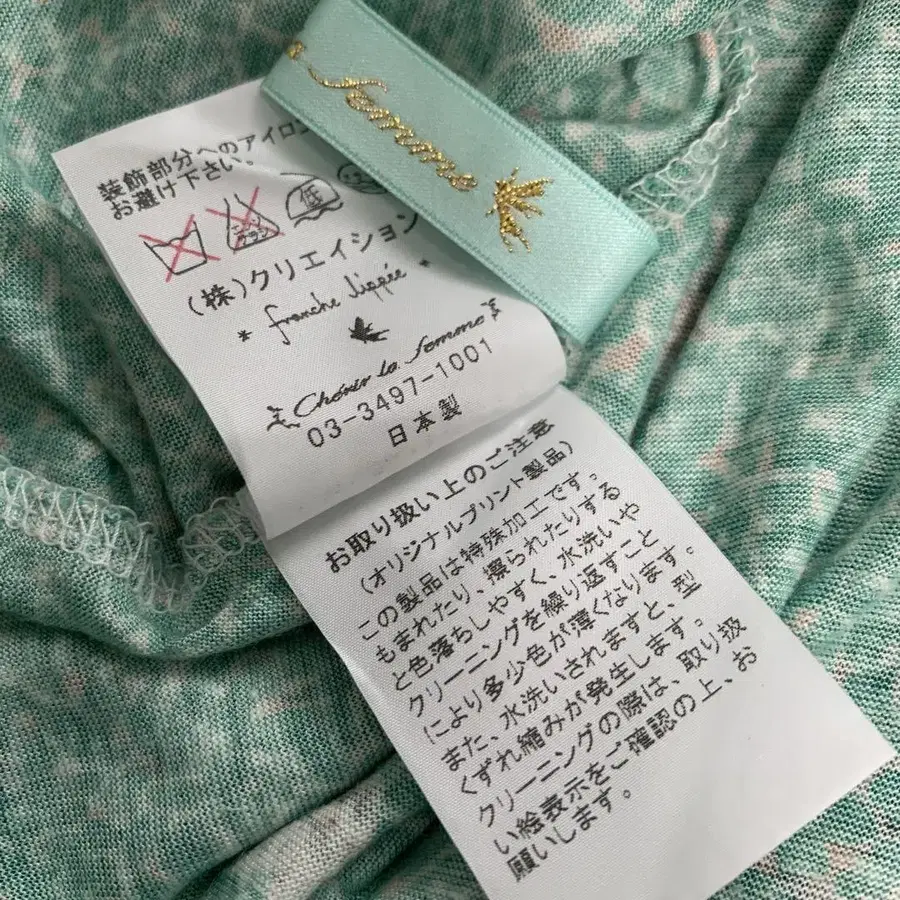 femme
装飾部分へのアイロン
お避け下さい。
エンソ
サラシ
低
(株)クリエイション
* franche lippée *
Chérir la femme
03-3497-1001
日本製
お取り扱い上のご注意
(オリジナルプリント製品)
この製品は特殊加工です。
もまれたり、擦られたりする
と色落ちしやすく、水洗いや
クリーニングを繰り返すこと
により多少色が薄くなります。
また、水洗いされますと、型
くずれ縮みが発生します。
クリーニングの際は、取り扱
い絵表示をご確認の上、お
願いします。